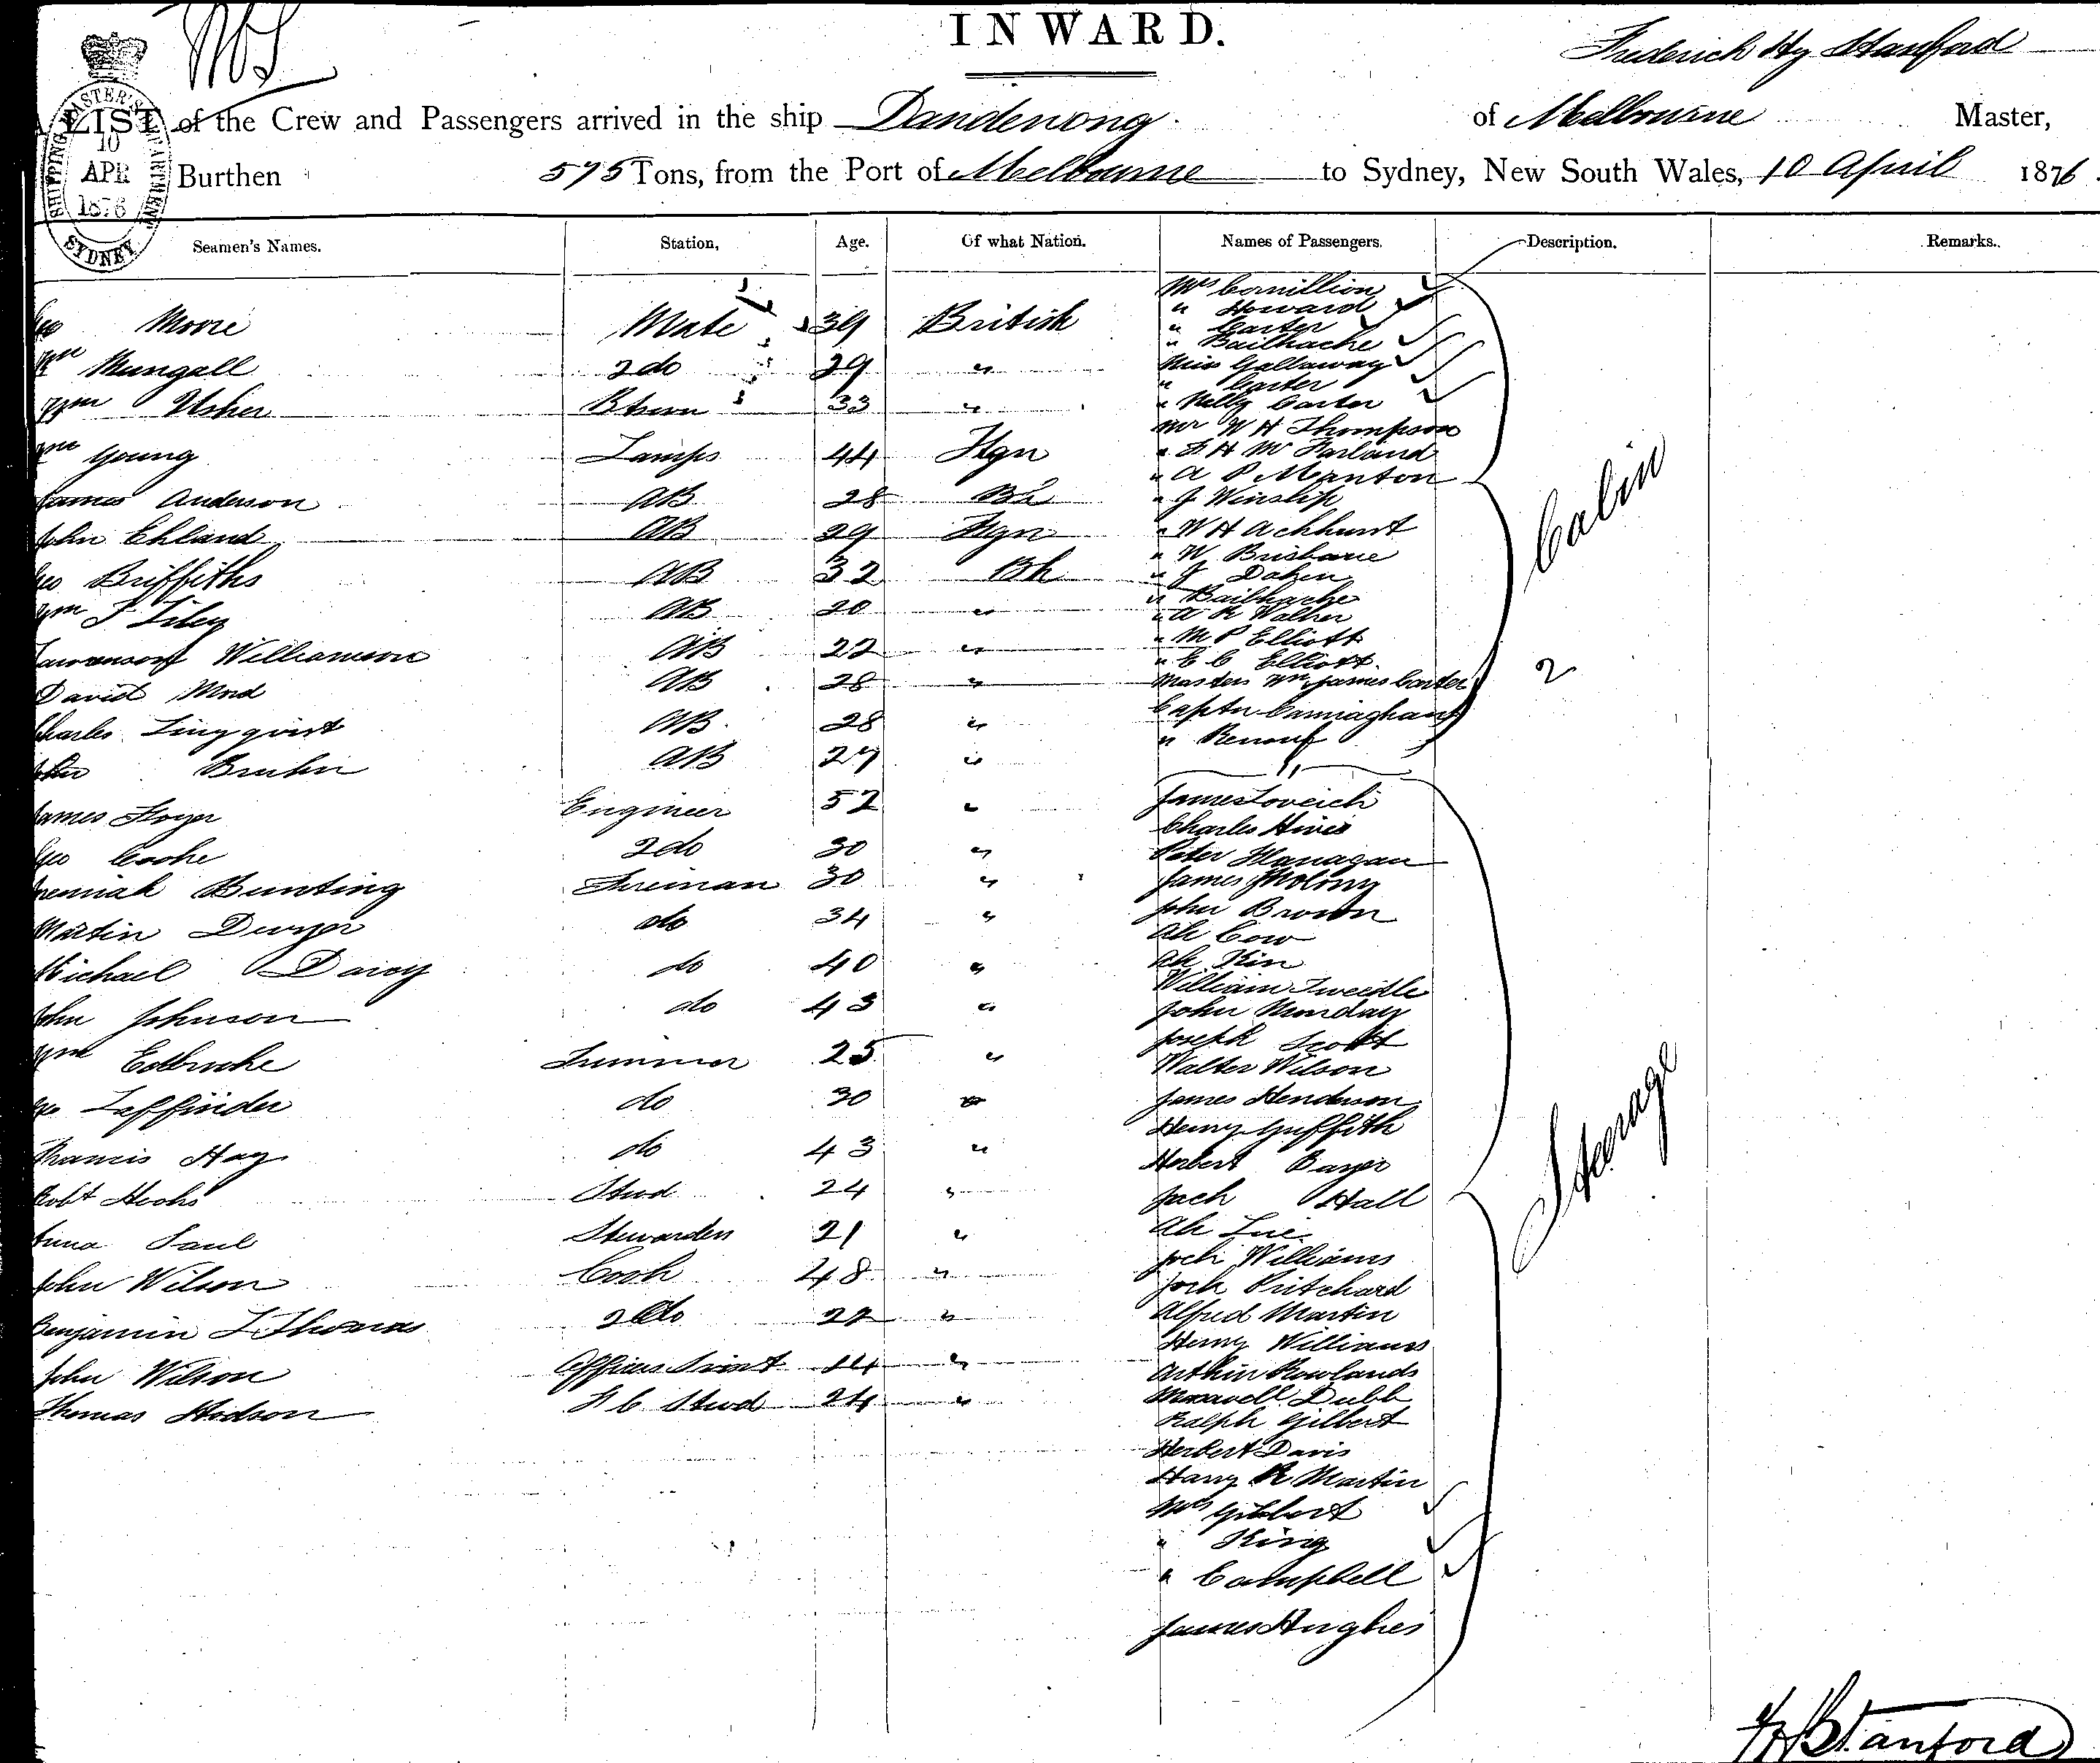 INWARD.
Frederick Hy Stanford
LIST of the Crew and Passengers arrived in the ship Dandenong of Melbourne Master,
Burthen 575 Tons, from the Port of Melbourne to Sydney, New South Wales, 10 April 1876.
SHIPPING MASTER'S DEPARTMENT
10
APR
1876
SYDNEY
Seamen's Names. Station, Age. Of what Nation. Names of Passengers. Description. Remarks.
Geo Moore Mate 39 British
Wm Mungall 2 do 29 "
Wm Usher 33 "
Wm Young Lamps 44 Fgn
James Anderson AB 28 Bh
John Ehland AB 29 Fgn
Geo Griffiths AB 32 Bh
Wm J Tiley AB 20 "
Williamson AB 22 "
David AB 28 "
Charles Lingqvist AB 28 "
John Bruhn AB 27 "
James Engineer 52 "
Geo Cooke 2 do 30 "
Jeremiah Bunting Fireman 30 "
Martin Dwyer do 34 "
Michael Darcy do 40 "
John Johnson do 43 "
Wm Colbrooke Trimmer 25 "
Geo Laffinder do 30 "
Francis Hay do 43 "
Robt Stewd 24 "
Saul Stewardess 21 "
John Wilson Cook 48 "
Benjamin Thomas 2 do 22 "
John Wilson Officers Servt 14 "
Thomas Hodson F C Stewd 24 "
Mrs Cornillion
" Howard
" Carter
" Bailhache
Miss Gallaway
" Carter
" Nelly Carter
Mr W H Thompson
" F H McFarland
" A P Manton
" J Winship
" W H Achhurst
" W Brisbane
" J
" Bailhache
" A R Walker
" M P Elliott
" C C Elliott
Masters Wm James Carter
Captn Cunningham
" Renouf
Cabin
2
James Loveich
Charles Hines
Peter Flanagan
James Molony
John Brown
Ah Cow
Ah Kin
William Tweedle
John Munday
Joseph Scott
Walter Wilson
James Henderson
Henry Griffith
Herbert
Jack Hall
Ah Lue
Jack Williams
Jack Pritchard
Alfred Martin
Henry Williams
Arthur Rowlands
Maxwell Dubb
Ralph Gilbert
Herbert Davis
Harry R Martin
Mrs Gilbert
" King
" Campbell
James Hughes
Steerage
F H Stanford